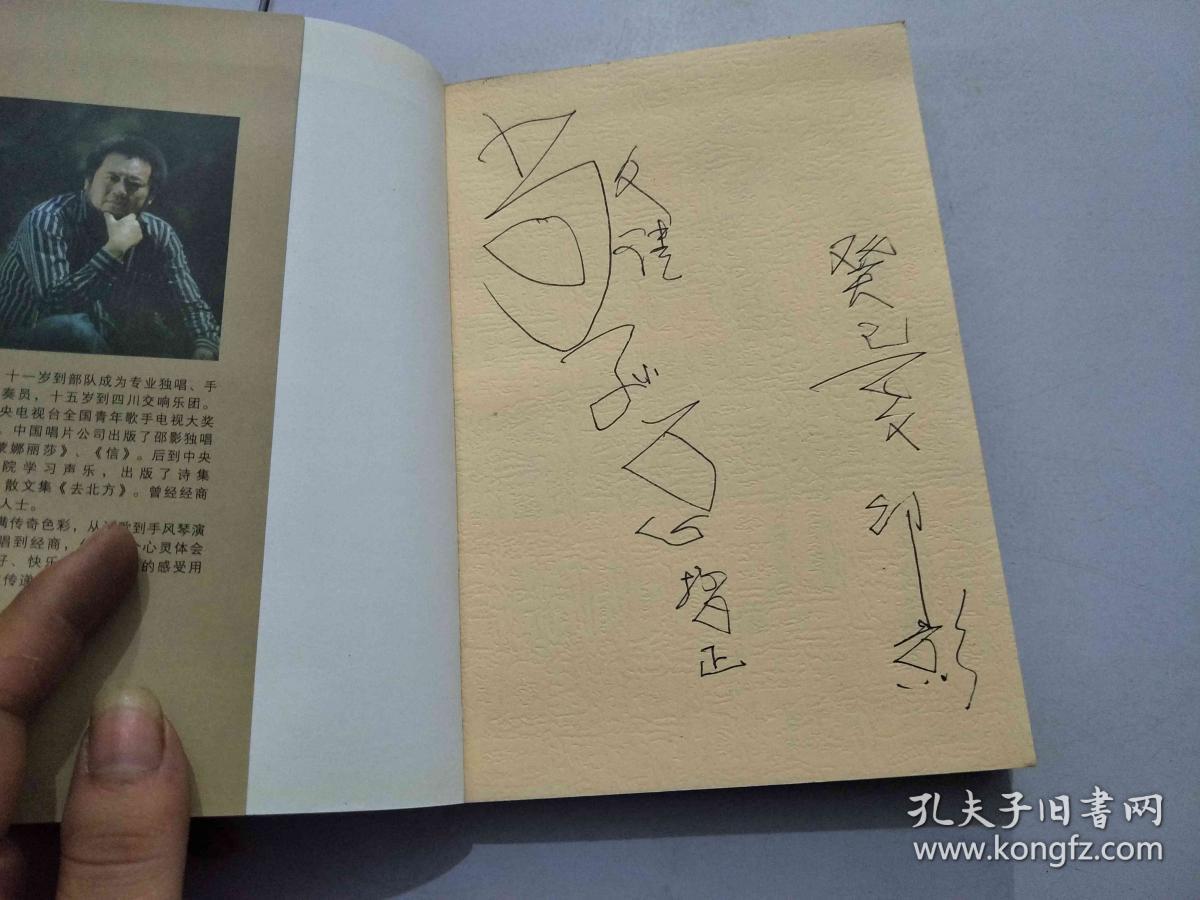 十一岁到部队成为专业独唱、手
奏员，十五岁到四川交响乐团。
央电视台全国青年歌手电视大奖
。中国唱片公司出版了邵影独唱
蒙娜丽莎》、《信》。后到中央
院学习声乐，出版了诗集
散文集《去北方》。曾经经商
人士。
满传奇色彩，从 歌到手风琴演
唱到经商， 心灵体会
好、快乐 的感受用
传递
指正
癸巳
邵影
孔夫子旧书网
www.kongfz.com